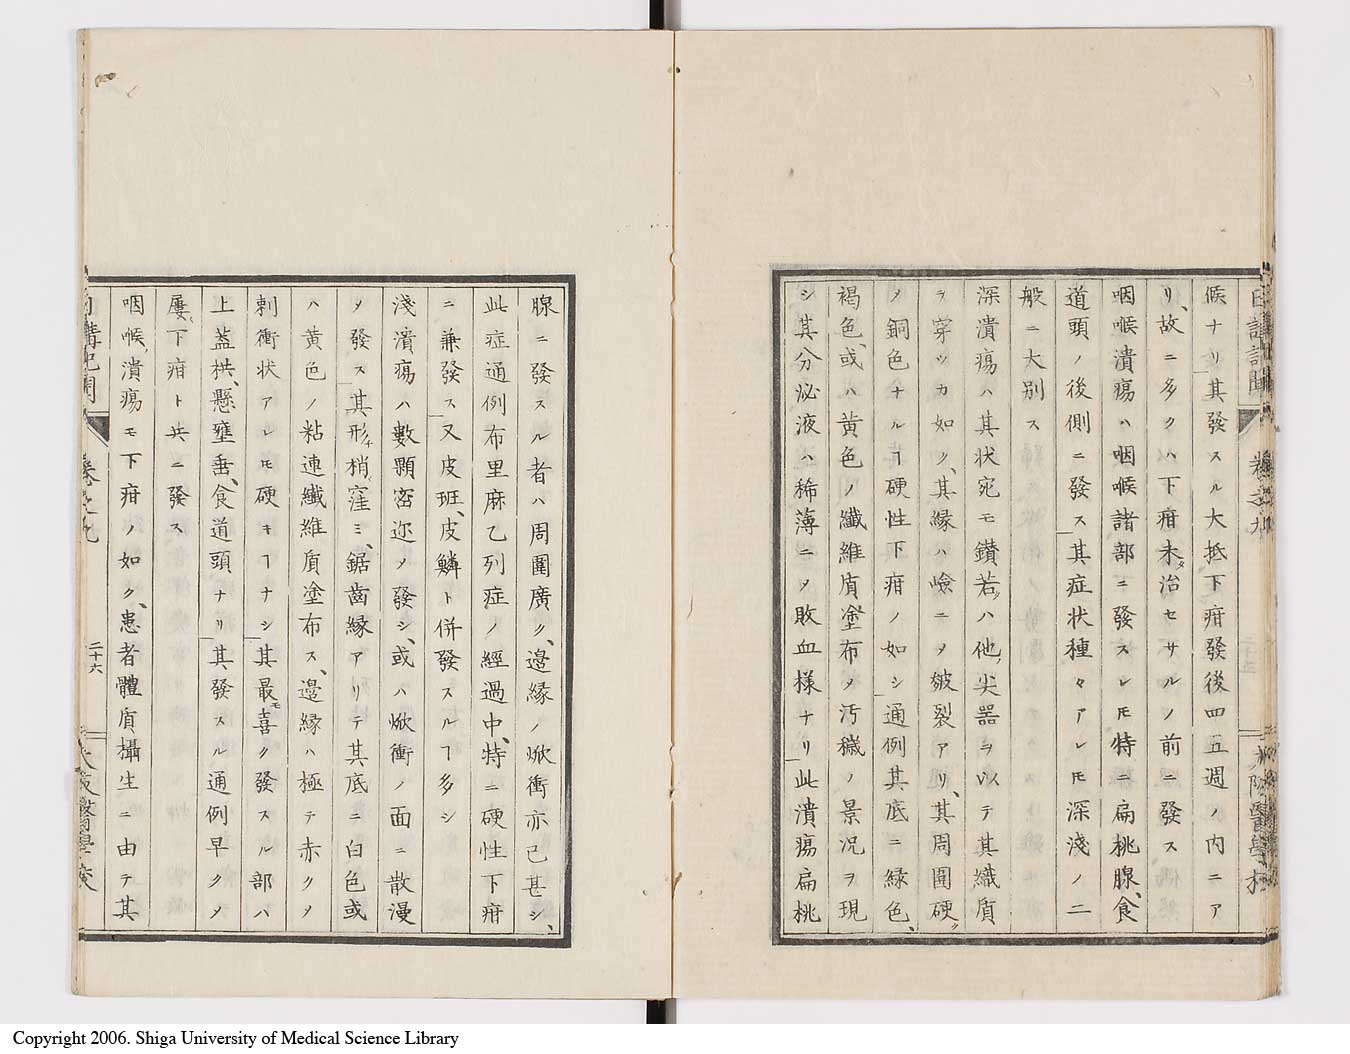 候ナリ其發スル大抵下疳發後四五週ノ内ニア
リ、故ニ多クハ下疳未タ治セサルノ前ニ發ス、
咽喉潰瘍ハ咽喉諸部ニ發スレ𪜈特ニ扁桃腺、食
道頭ノ後側ニ發ス其症状種々アレ𪜈深淺ノ二
般ニ大別ス
深潰瘍ハ其状宛モ鑚若クハ他ノ尖器ヲ以テ其織質
ヲ穿ツカ如ク、其縁ハ嶮ニ〆皴裂アリ、其周圍硬ク
〆銅色ナルヿ硬性下疳ノ如シ通例其底ニ緑色、
褐色、或ハ黄色ノ纖維質塗布〆汚穢ノ景况ヲ現
シ其分泌液ハ稀薄ニ〆敗血様ナリ此潰瘍扁桃
腺ニ發スル者ハ周圍廣ク、邉縁ノ焮衝亦已甚シ、
此症通例布里麻乙列症ノ經過中、特ニ硬性下疳
ニ兼發ス又皮斑、皮鱗ト併發スルヿ多シ
淺潰瘍ハ數顆密迩〆發シ、或ハ焮衝ノ面ニ散漫
〆發ス其形チ梢窪ミ、鋸齒縁アリテ其底ニ白色或
ハ黄色ノ粘連纖維質塗布ス、邉縁ハ極テ赤ク〆
刺衝状アレ𪜈硬キヿナシ其最モ喜ク發スル部ハ
上蓋栱、懸壅垂、食道頭ナリ其發スル、通例早ク〆
屢、下疳ト共ニ發ス
咽喉潰瘍モ下疳ノ如ク、患者體質攝生ニ由テ其
卷之九
二十六
大阪醫學校
Copyright 2006. Shiga University of Medical Science Library